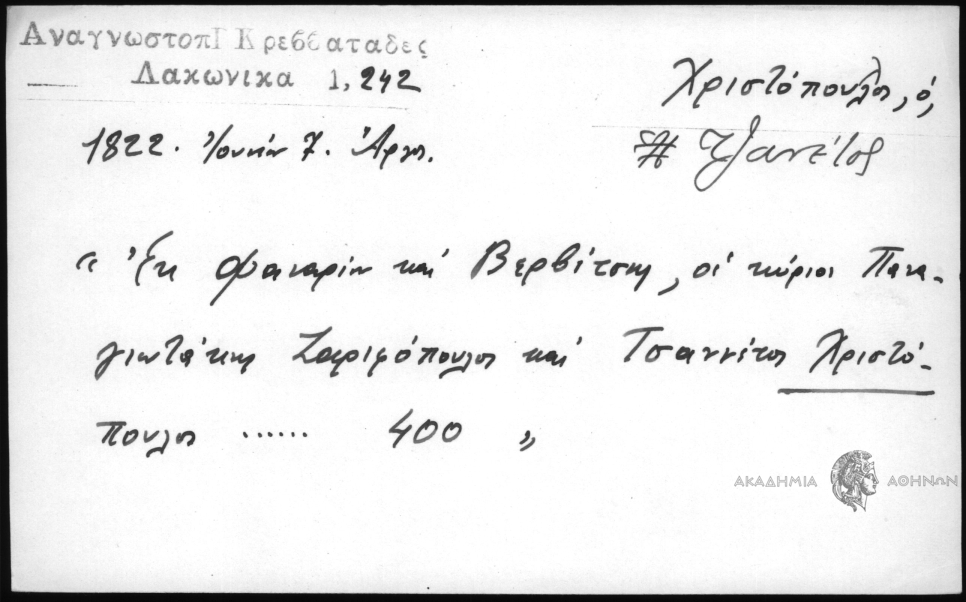 ΑναγνωστοπΓ Κρεββαταδες
Λακωνικα 1, 242
Χριστόπουλος, ὁ,
1822. Ἰουνίου 7. Ἄργος.
# Τζανέτος
« Ἐκ Φαναρίου καὶ Βερβίτσης, οἱ κύριοι Πανα-
γιωτάκης Ζαριφόπουλος καὶ Τσαννέτος Χριστό-
πουλος ...... 400 »
ΑΚΑΔΗΜΙΑ ΑΘΗΝΩΝ